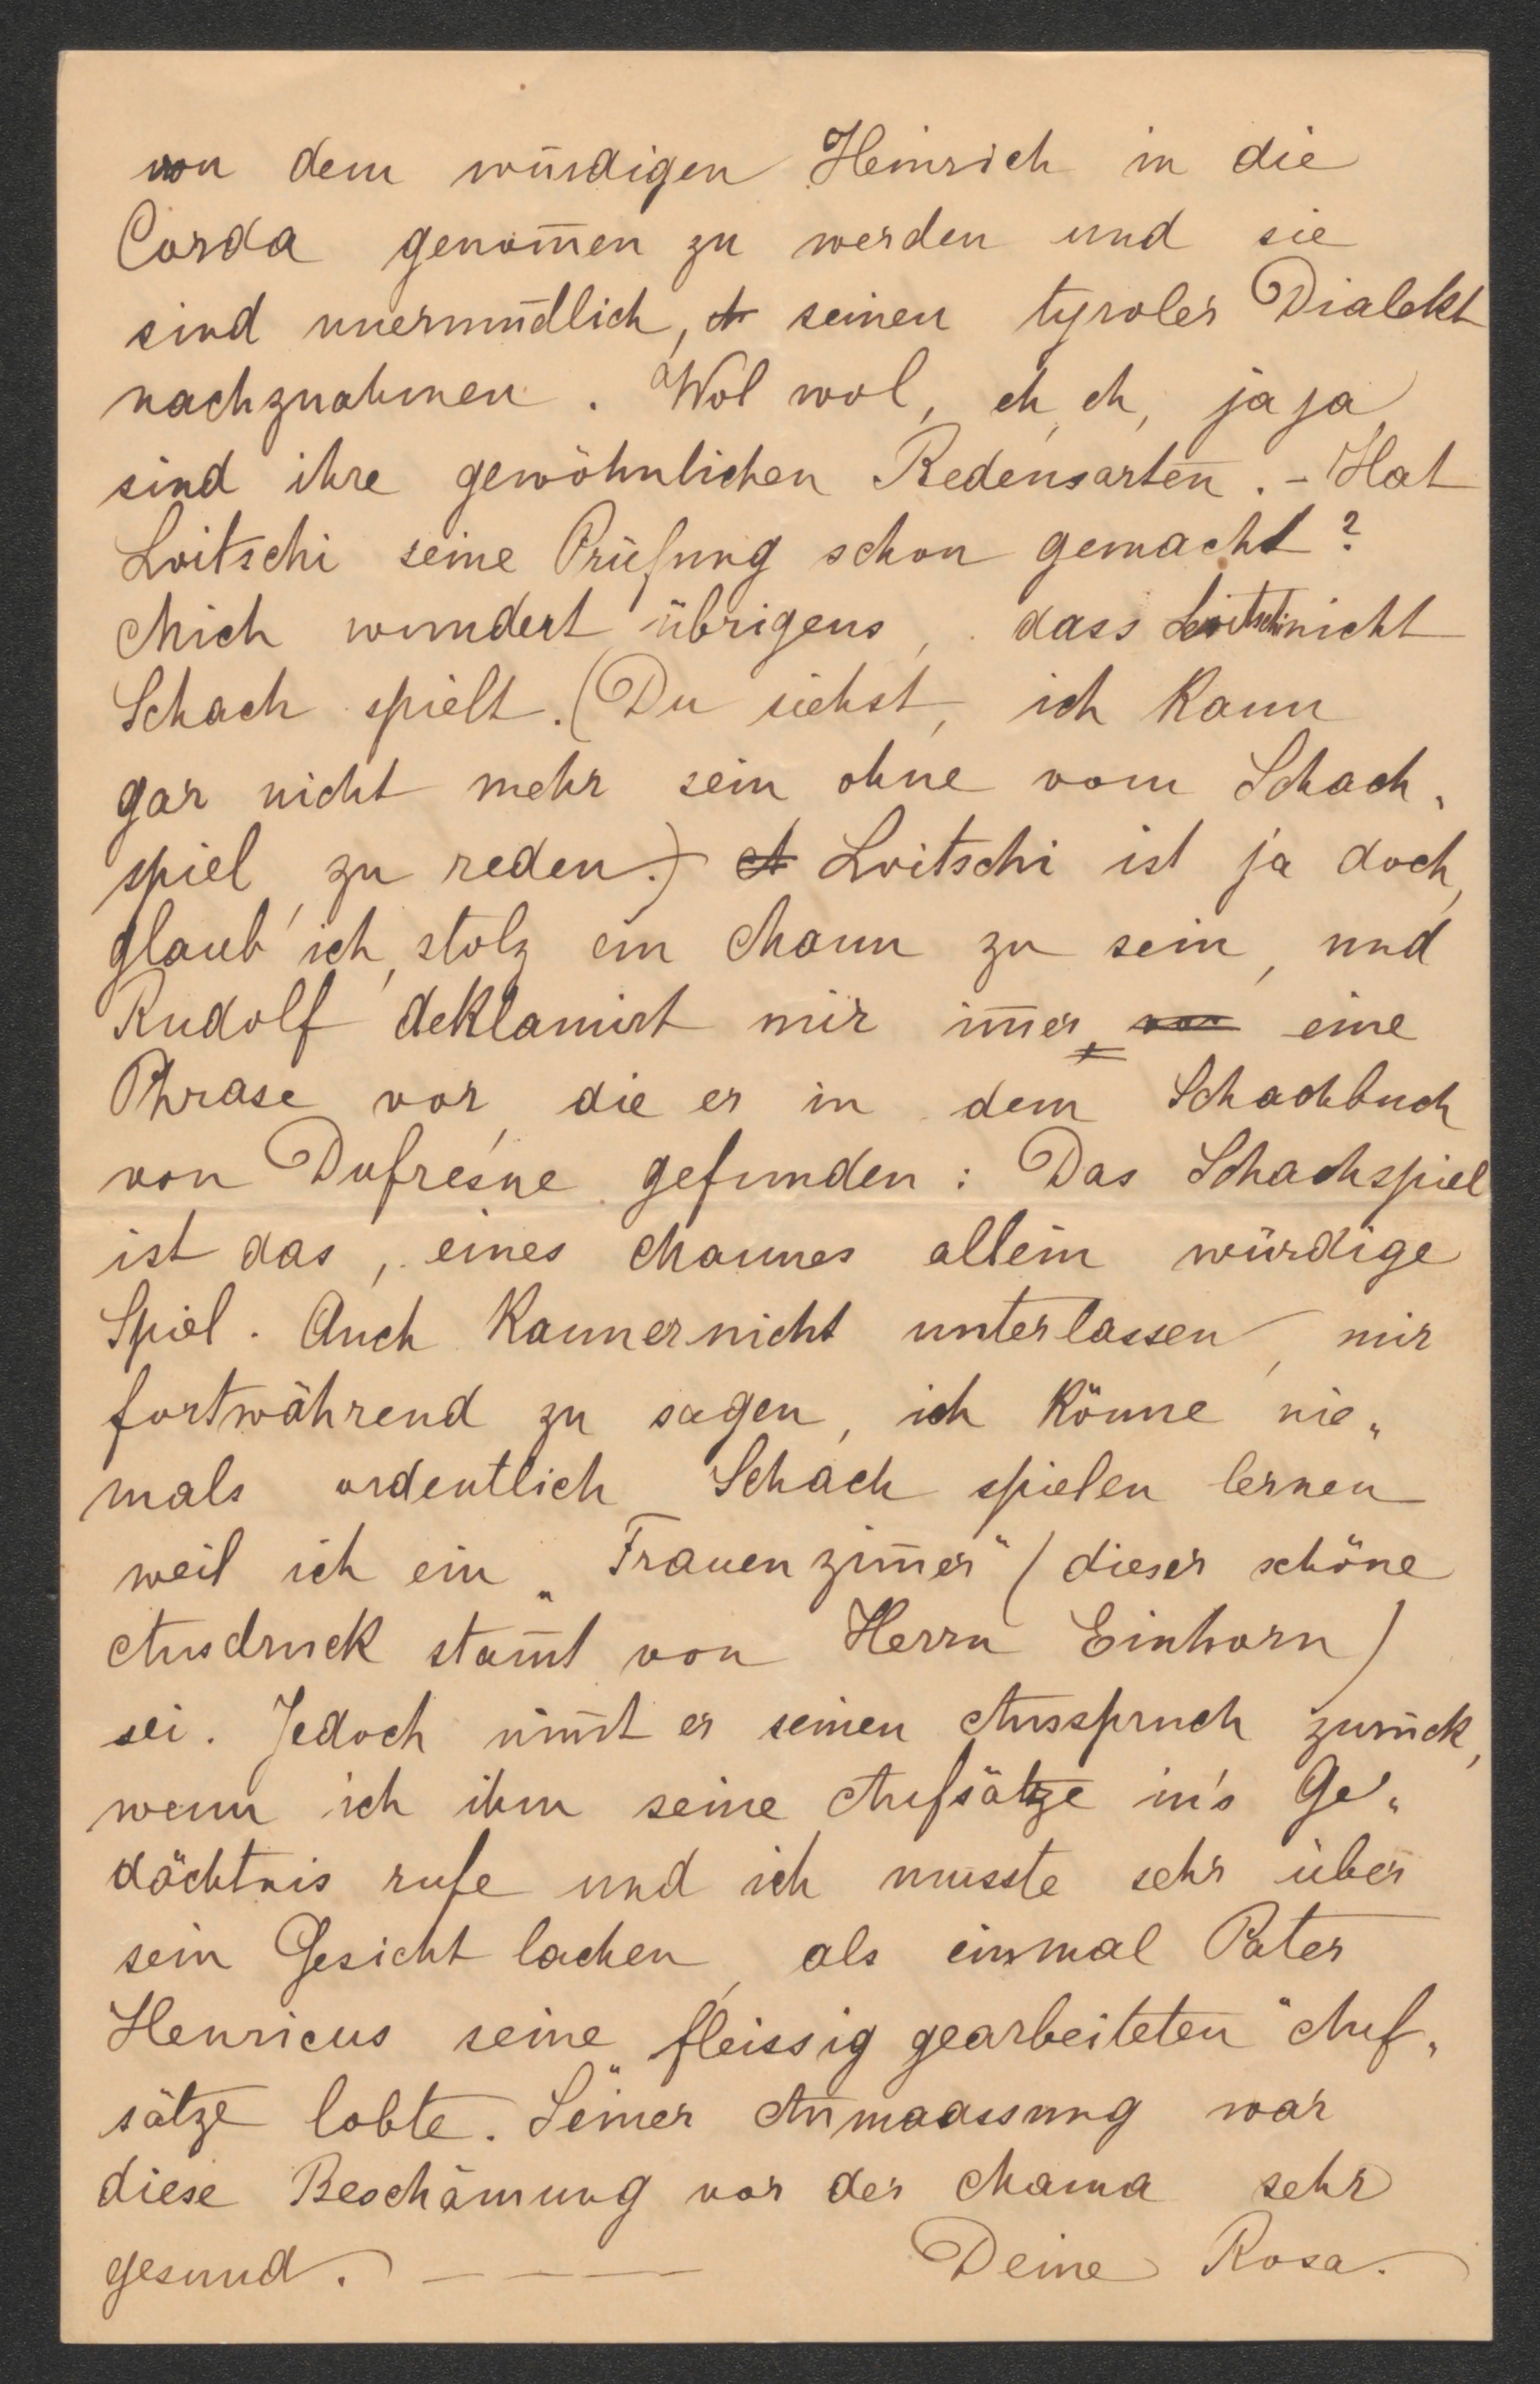 von dem würdigen Heinrich in die
Corda genom̅en zu werden und sie
sind unermüdlich, seinen tyroler Dialekt
nachzuahmen. Wol wol, eh, eh, ja ja,
sind ihre gewöhnlichen Redensarten. - Hat
Loitschi seine Prüfung schon gemacht?
Mich wundert übrigens, dass Loitschi nicht
Schach spielt. (Du siehst, ich kann
gar nicht mehr sein, ohne vom Schach„
spiel zu reden.) Loitschi ist ja doch,
glaub' ich, stolz ein Mann zu sein, und
Rudolf deklamirt mir im̅er, eine
Phrase vor, die er in dem Schachbuch
von Dufresne gefunden: Das Schachspiel
ist das, eines Mannes allein würdige
Spiel. Auch kann er nicht unterlassen, mir
fortwährend zu sagen, ich könne nie„
mals ordentlich Schach spielen lernen
weil ich ein „Frauenzim̅er" (dieser schöne
Ausdruck stam̅t von Herrn Einhorn)
sei. Jedoch nim̅t er seinen Ausspruch zurück,
wenn ich ihm seine Aufsätze in's Ge„
dächtnis rufe und ich musste sehr über
sein Gesicht lachen, als einmal Pater
Henricus seine „fleissig gearbeiteten" Auf„
sätze lobte. Seiner Anmaassung war
diese Beschämung vor der Mama sehr
gesund. — — — — Deine Rosa.